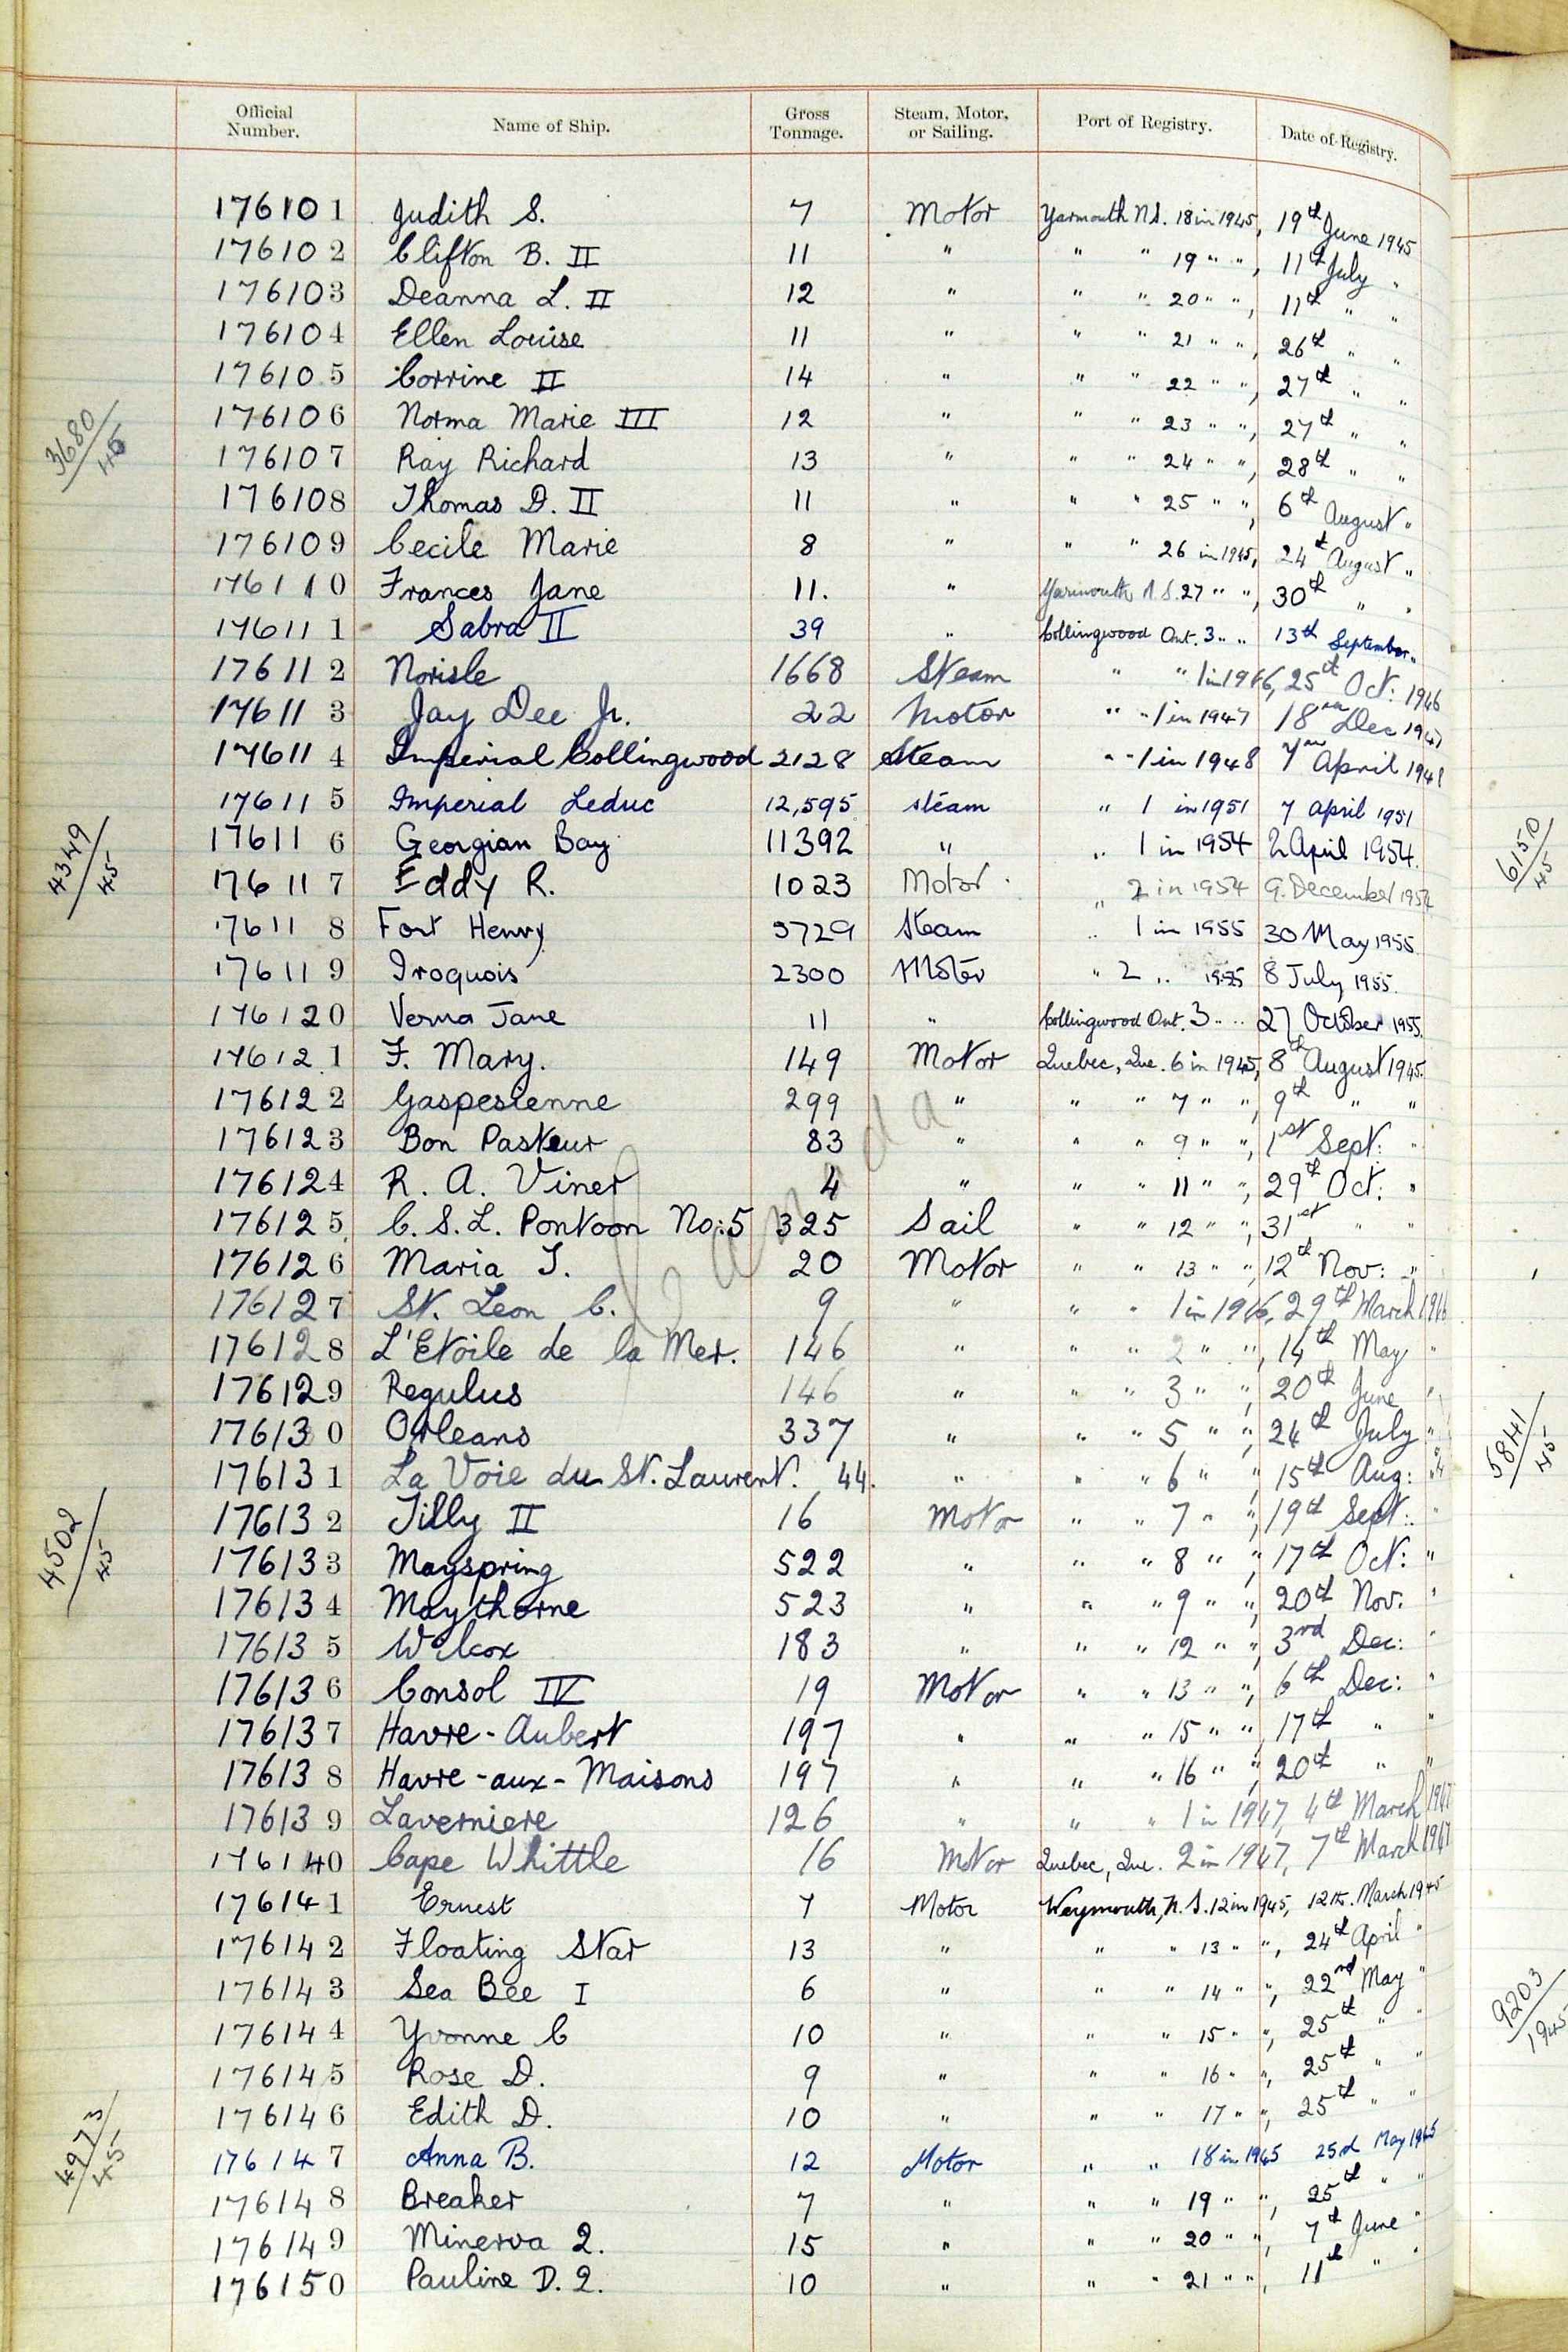 Official Number. Name of Ship. Gross Tonnage. Steam, Motor, or Sailing. Port of Registry. Date of Registry.
176101 Judith S. 7 Motor Yarmouth N.S. 18 in 1945, 19th June 1945
176102 Clifton B. II 11 " " " 19 " ", 11th July "
176103 Deanna L. II 12 " " " 20 " ", 11th " "
176104 Ellen Louise 11 " " " 21 " ", 26th " "
176105 Corrine II 14 " " " 22 " ", 27th " "
3680/45 176106 Norma Marie III 12 " " " 23 " ", 27th " "
176107 Ray Richard 13 " " " 24 " ", 28th " "
176108 Thomas D. II 11 " " " 25 " ", 6th August "
176109 Cecile Marie 8 " " " 26 in 1945, 24th August "
176110 Frances Jane 11. " Yarmouth N.S. 27 " ", 30th " "
176111 Sabra II 39 " Collingwood Ont. 3 " " 13th September "
176112 Norisle 1668 Steam " " 1 in 1946, 25th Oct: 1946
176113 Jay Dee Jr. 22 Motor " " 1 in 1947 18th Dec 1947
176114 Imperial Collingwood 2128 Steam " " 1 in 1948 7th April 1948
176115 Imperial Leduc 12,595 steam " 1 in 1951 7 April 1951
4349/45 176116 Georgian Bay 11392 " " 1 in 1954 2 April 1954. 6150/45
176117 Eddy R. 1023 Motor " 2 in 1954 9. December 1954
176118 Fort Henry 5729 Steam " 1 in 1955 30 May 1955
176119 Iroquois 2300 Motor " 2 " 1955 8 July 1955.
176120 Verna Jane 11 " Collingwood Ont. 3 " " 27 October 1955.
176121 F. Mary. 149 Motor Quebec, Que. 6 in 1945, 8th August 1945.
176122 Gaspesienne 299 " " " 7 " ", 9th " "
176123 Bon Pasteur 83 " " " 9 " ", 1st Sept: "
176124 R. A. Viner 4 " " " 11 " ", 29th Oct: "
176125 C. S. L. Pontoon No: 5 325 Sail " " 12 " ", 31st " "
176126 Maria J. 20 Motor " " 13 " ", 12th Nov: "
176127 St. Leon C. 9 " " " 1 in 1946, 29th March 1946
176128 L'Etoile de la Mer. 146 " " " 2 " ", 14th May "
176129 Regulus 146 " " " 3 " ", 20th June "
176130 Orleans 337 " " " 5 " ", 24th July " 5841/45
176131 La Voie du St. Laurent. 44. " " " 6 " ", 15th Aug: "
4502/45 176132 Tilly II 16 Motor " " 7 " ", 19th Sept: "
176133 Mayspring 522 " " " 8 " ", 17th Oct: "
176134 Maythorne 523 " " " 9 " ", 20th Nov: "
176135 Wilcox 183 " " " 12 " ", 3rd Dec: "
176136 Consol IV 19 Motor " " 13 " ", 6th Dec: "
176137 Havre-Aubert 197 " " " 15 " ", 17th " "
176138 Havre-aux-Maisons 197 " " " 16 " ", 20th " "
176139 Laverniere 126 " " " 1 in 1947, 4th March 1947
176140 Cape Whittle 16 Motor Quebec, Que. 2 in 1947, 7th March 1947
176141 Ernest 7 Motor Weymouth, N.S. 12 in 1945, 12th. March 1945
176142 Floating Star 13 " " " 13 " ", 24th April "
176143 Sea Bee I 6 " " " 14 " ", 22nd May " 9203/1945
176144 Yvonne C 10 " " " 15 " ", 25th " "
176145 Rose D. 9 " " " 16 " ", 25th " "
176146 Edith D. 10 " " " 17 " ", 25th " "
4973/45 176147 Anna B. 12 Motor " " 18 in 1945 25rd May 1945
176148 Breaker 7 " " " 19 " ", 25th " "
176149 Minerva 2. 15 " " " 20 " ", 7th June "
176150 Pauline D. 2. 10 " " " 21 " ", 11th " "
Canada